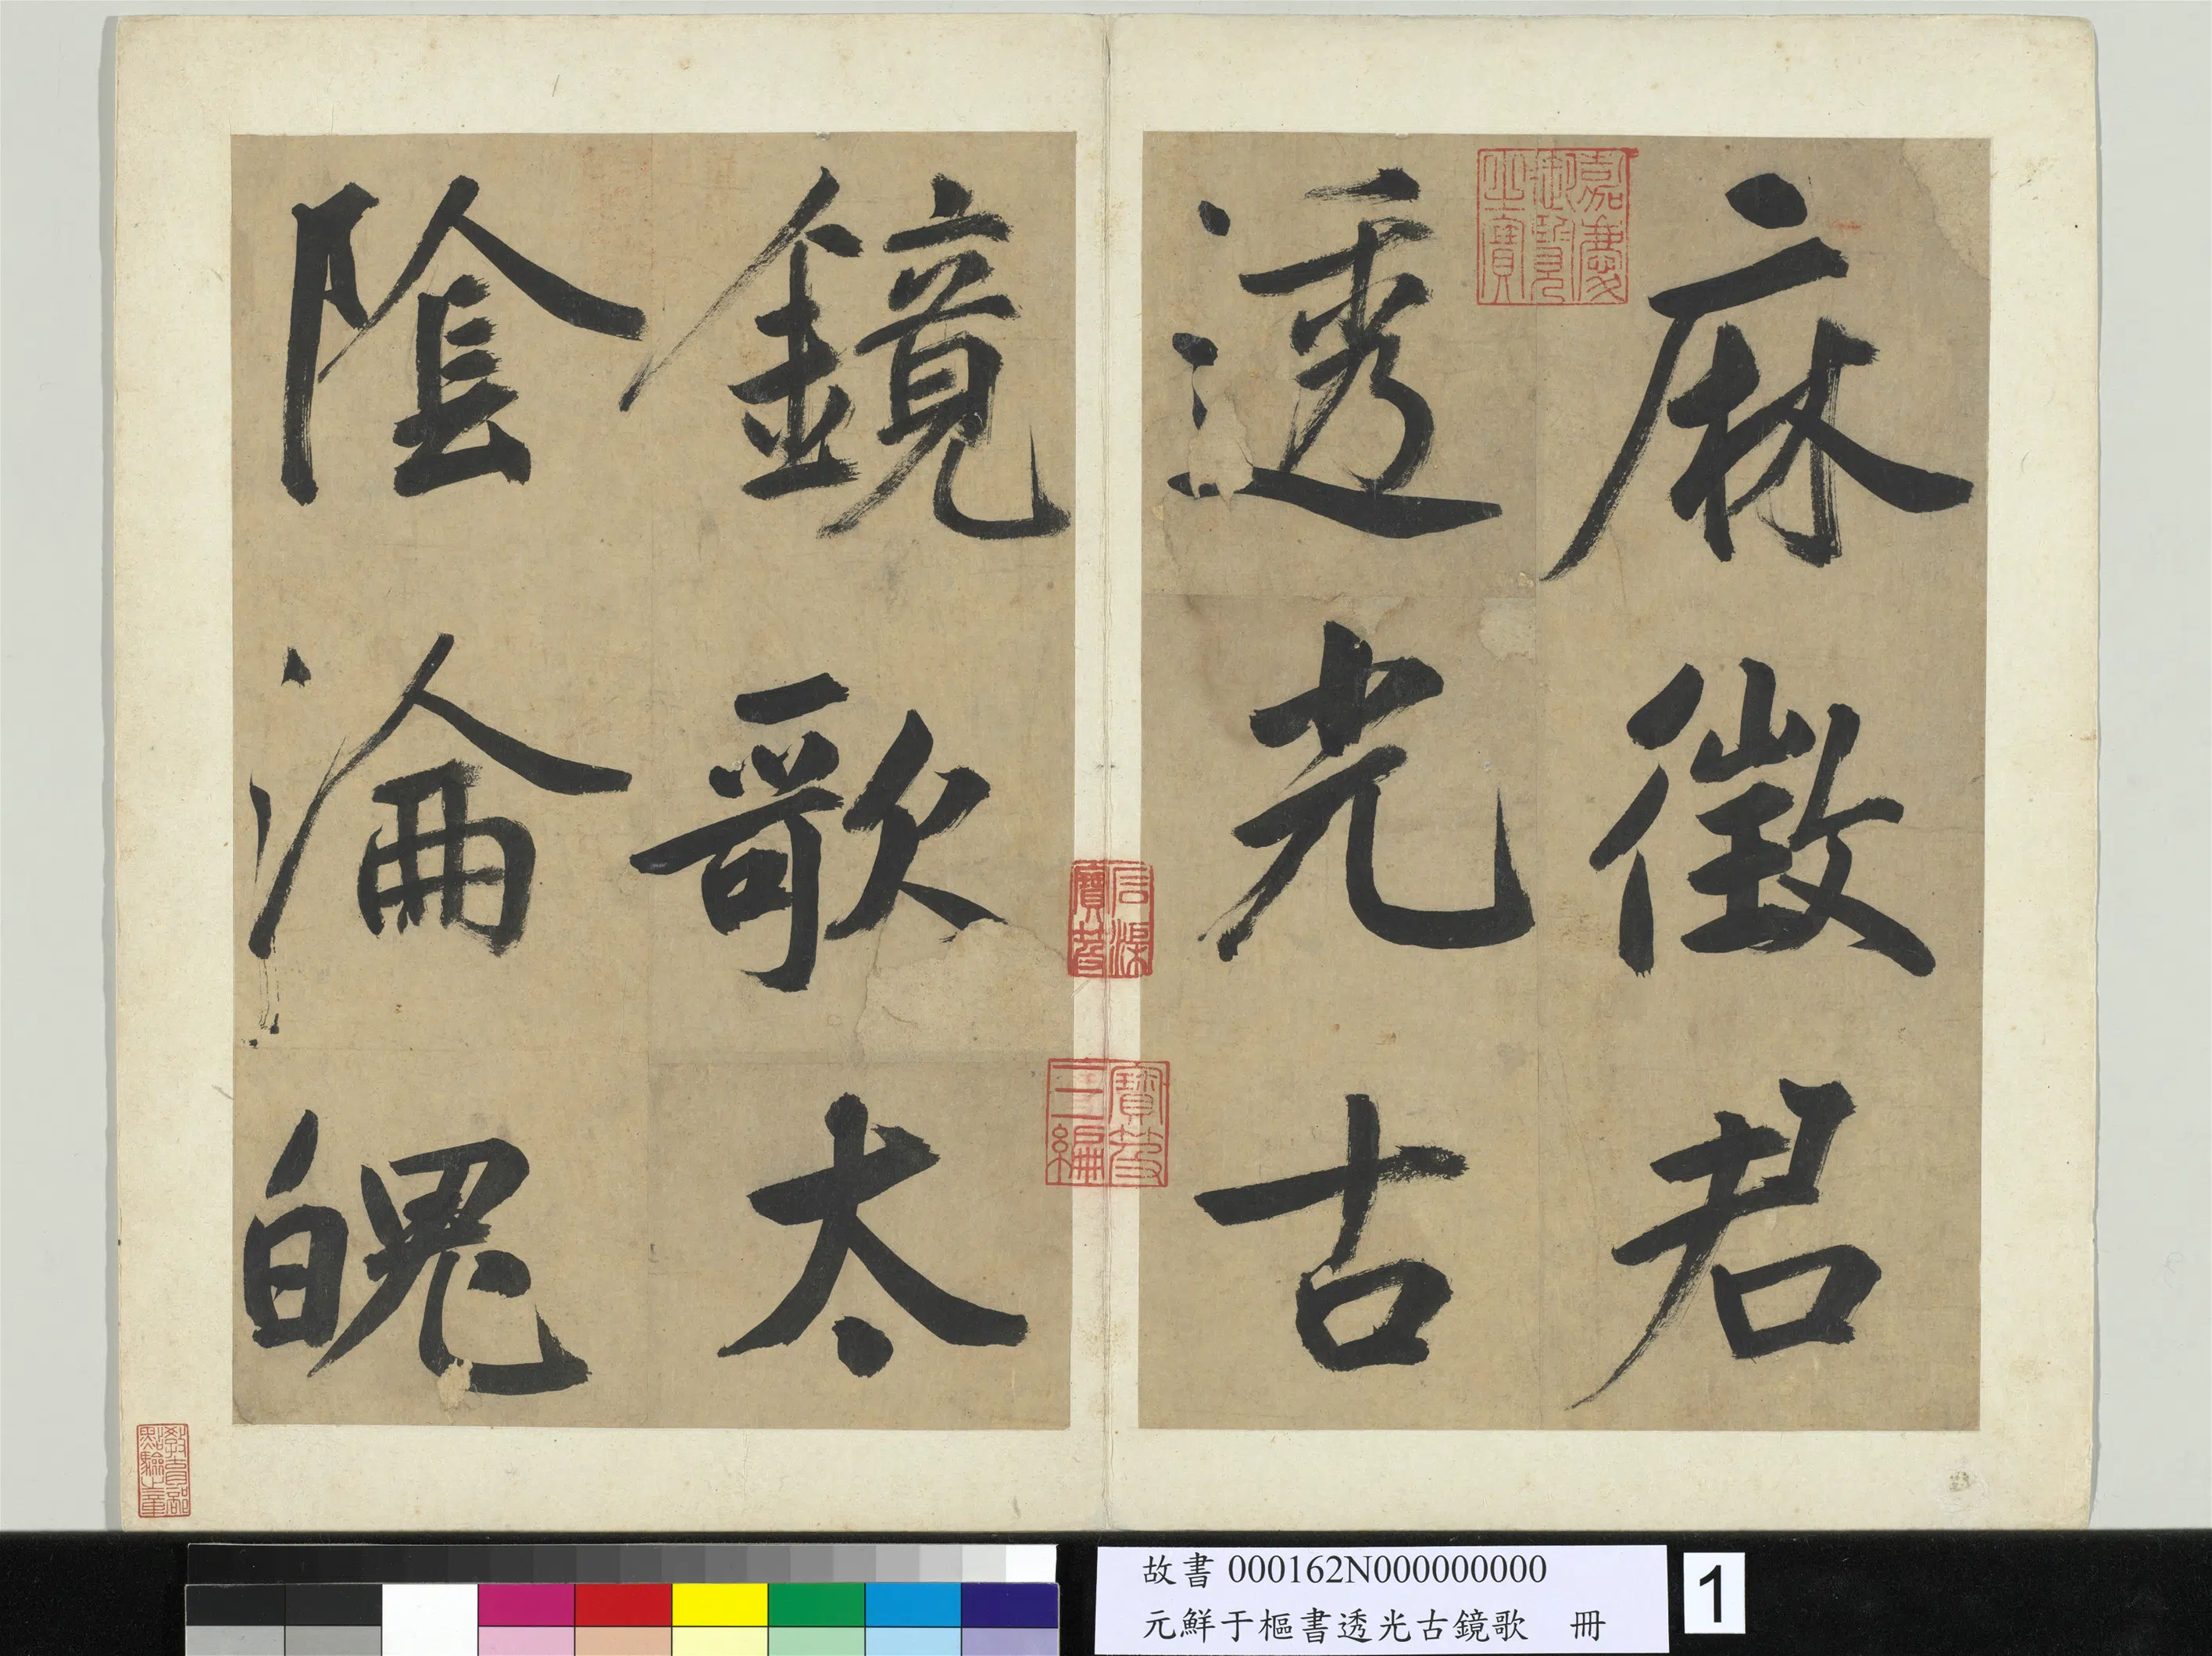 麻徵君
透光古
鏡歌太
陰淪魄
嘉慶御覽之寶
石渠寶笈
寶笈三編
教育部點驗之章
故書 000162N000000000
元鮮于樞書透光古鏡歌 冊
1